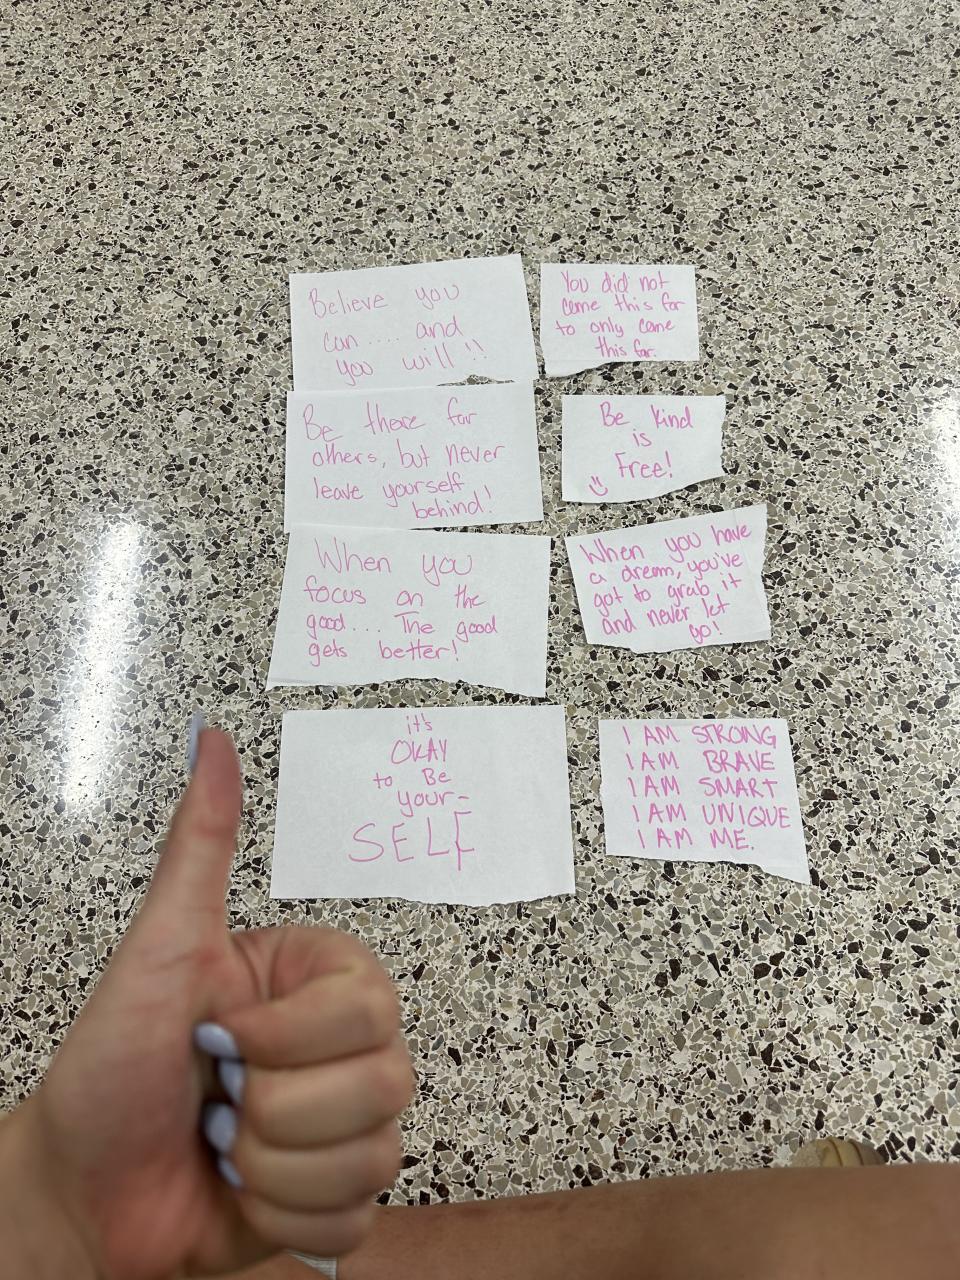 Believe you
can .... and
you will !!
You did not
come this far
to only come
this far.
Be there for
others, but never
leave yourself
behind!
Be kind
is
Free!
When you
focus on the
good.... The good
gets better!
When you have
a dream, you've
got to grab it
and never let
go!
it's
OKAY
to Be
your-
SELF
I AM STRONG
I AM BRAVE
I AM SMART
I AM UNIQUE
I AM ME.